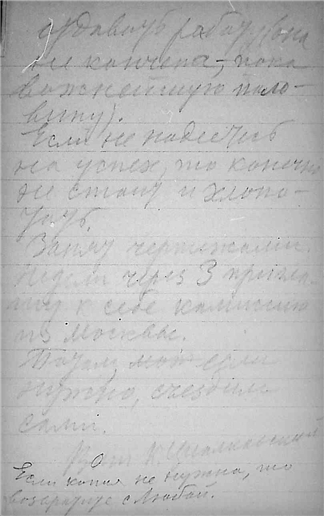 отдавать работу (она
не кончена, пока
важнейшую поло-
вину).
Если не надеетесь
на успех, то конечно
не стану и хлопо-
тать.
Займу чертежами.
Недели через 3 пригла-
шу к себе комиссию
из Москвы.
Потом, если
нужно, съездим
сами.
Ваш К. Циолковский
Если копия не нужна, то
возвратите с Любой.